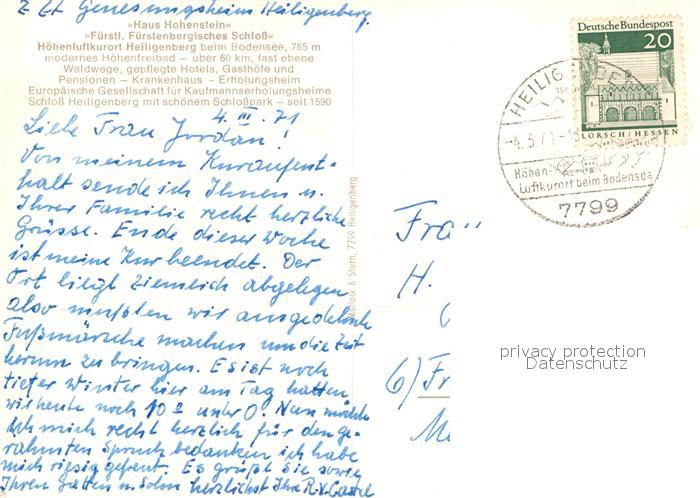 z. Zt. Genesungsheim Heiligenberg.
»Haus Hohenstein«
»Fürstl. Fürstenbergisches Schloß«
Höhenluftkurort Heiligenberg beim Bodensee, 785 m
modernes Höhenfreibad – über 60 km, fast ebene
Waldwege, gepflegte Hotels, Gasthöfe und
Pensionen – Krankenhaus – Erholungsheim
Europäische Gesellschaft für Kaufmannserholungsheime
Schloß Heiligenberg mit schönem Schloßpark – seit 1590
4. III. 71
Liebe Frau Jordan!
Von meinem Kuraufent-
halt sende ich Ihnen u.
Ihrer Familie recht herzliche
Grüsse. Ende dieser Woche
ist meine Kur beendet. Der
Ort liegt ziemlich abgelegen
also mußten wir ausgedehnte
Fußmärsche machen um die Zeit
herum zu bringen. Es ist noch
tiefer Winter hier am Tag hatten
wir heute noch 10° unter 0. Nun möchte
ich mich recht herzlich für den ge-
rahmten Spruch bedanken ich habe
mich riesig gefreut. Es grüßt Sie sowie
Ihren Gatten u. Sohn herzlichst Ihre R. v. Cassel
& Sturn, 7799 Heiligenberg
Deutsche Bundespost
20
LORSCH/HESSEN
HEILIGENBERG
-4.3.71-1
Höhen-
Luftkurort beim Bodensee
7799
Frau
H.
6) Fr
privacy protection
Datenschutz